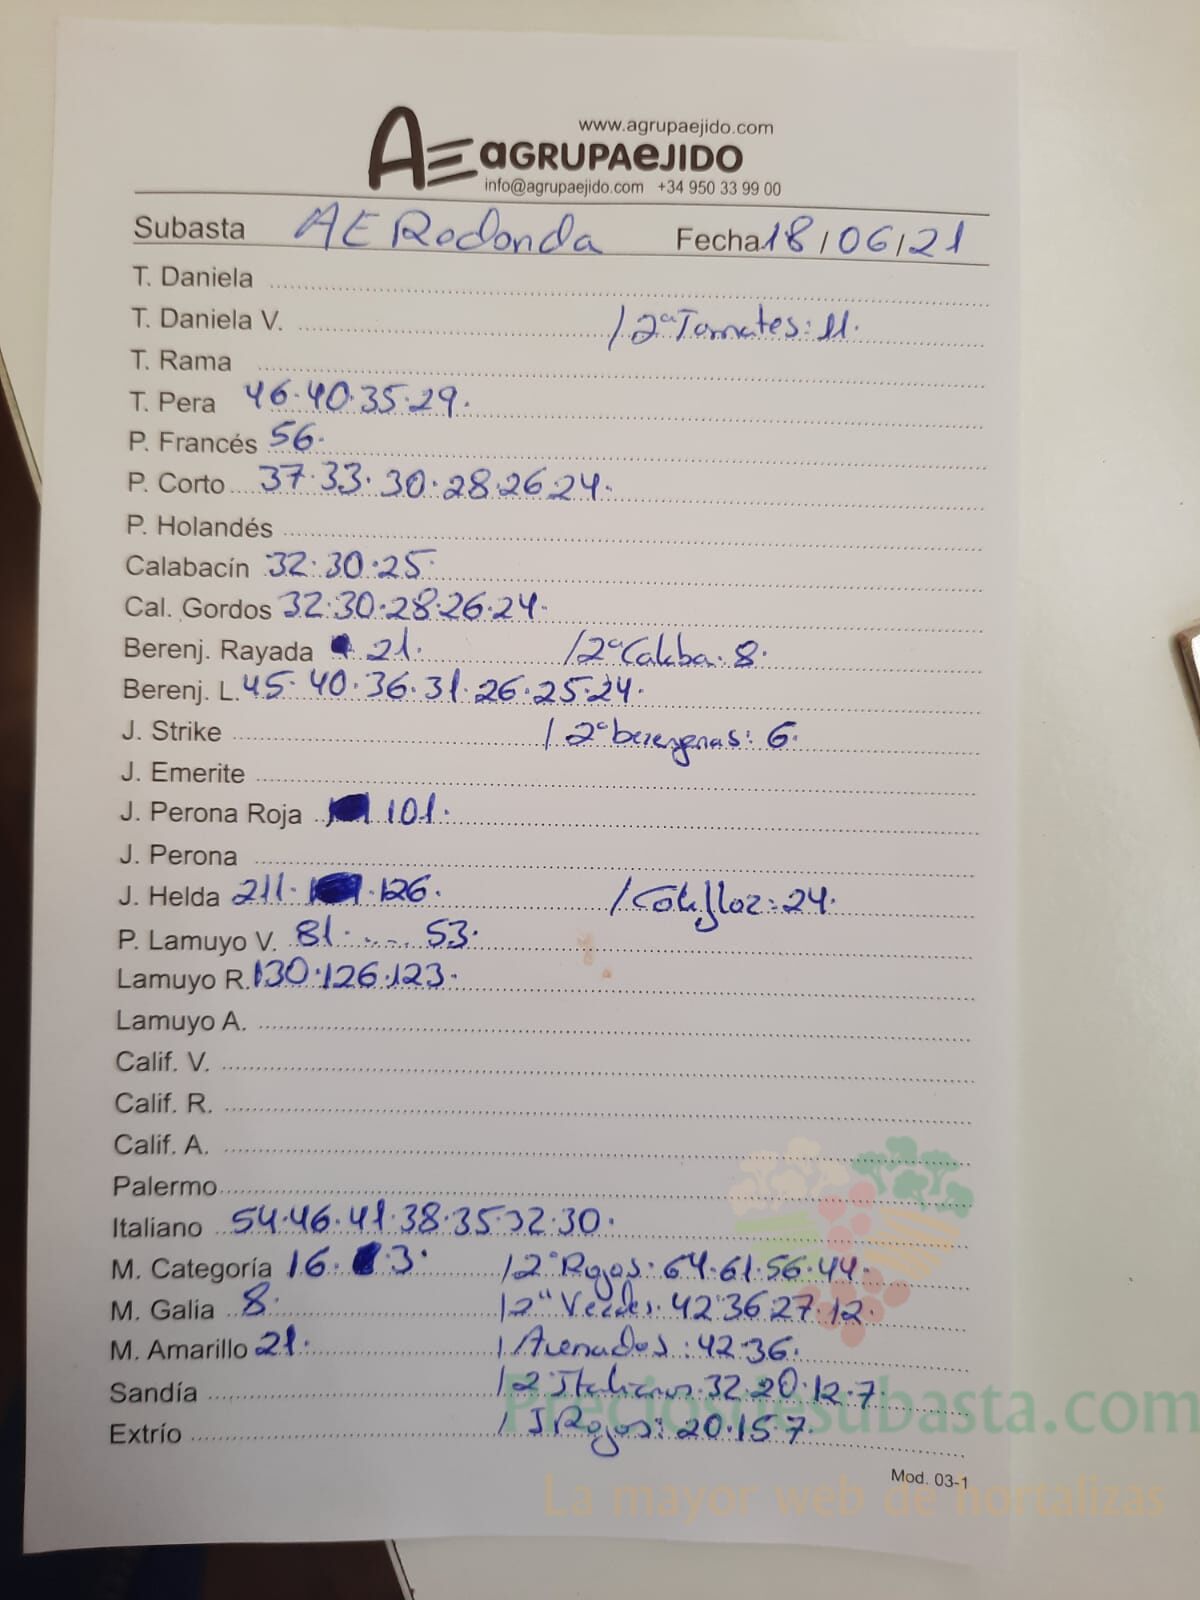 www.agrupaejido.com
AE aGRUPAeJIDO
info@agrupaejido.com +34 950 33 99 00
Subasta AE Redonda Fecha 18/06/21
T. Daniela
T. Daniela V. / 2ª Tomates: 11.
T. Rama
T. Pera 46·40·35·29.
P. Francés 56.
P. Corto 37·33·30·28·26·24.
P. Holandés
Calabacín 32·30·25.
Cal. Gordos 32·30·28·26·24.
Berenj. Rayada 21. / 2ª Calaba. 8.
Berenj. L. 45·40·36·31·26·25·24.
J. Strike / 2ª berengenas: 6.
J. Emerite
J. Perona Roja 101.
J. Perona
J. Helda 211· ·126. / Coliflor: 24.
P. Lamuyo V. 81·....53.
Lamuyo R. 130·126·123.
Lamuyo A.
Calif. V.
Calif. R.
Calif. A.
Palermo
Italiano 54·46·41·38·35·32·30.
M. Categoría 16· 3. / 2ª Rojos: 64·61·56·44.
M. Galia 8. / 2ª Verdes. 42·36·27·12.
M. Amarillo 21. / Asenados: 42·36.
Sandía / 2ª Italianos 32·20·12·7.
Extrío / I Rojos: 20·15·7.
Preciosdesubasta.com
Mod. 03-1
La mayor web de hortalizas